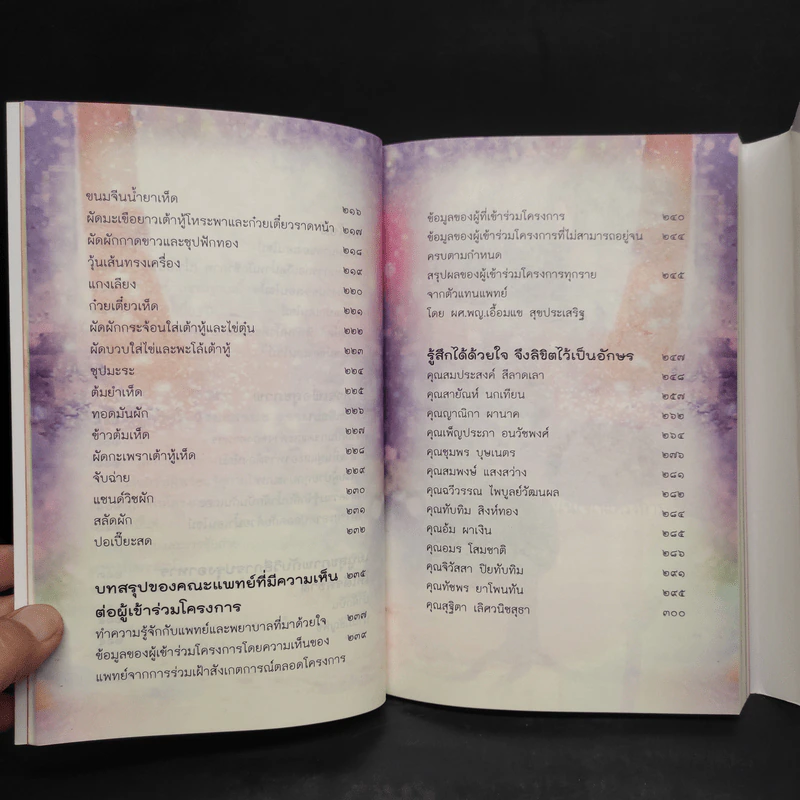 ขนมจีนน้ำยาเห็ด ๒๑๖
ผัดมะเขือยาวเต้าหู้โหระพาและก๋วยเตี๋ยวราดหน้า ๒๑๗
ผัดผักกาดขาวและซุปฟักทอง ๒๑๘
วุ้นเส้นทรงเครื่อง ๒๑๙
แกงเลียง ๒๒๐
ก๋วยเตี๋ยวเห็ด ๒๒๑
ผัดผักกระจ้อนใส่เต้าหู้และไข่ตุ๋น ๒๒๒
ผัดบวบใส่ไข่และพะโล้เต้าหู้ ๒๒๓
ซุปมะระ ๒๒๔
ต้มยำเห็ด ๒๒๕
ทอดมันผัก ๒๒๖
ข้าวต้มเห็ด ๒๒๗
ผัดกะเพราเต้าหู้เห็ด ๒๒๘
จับฉ่าย ๒๒๙
แซนด์วิชผัก ๒๓๐
สลัดผัก ๒๓๑
ปอเปี๊ยะสด ๒๓๒
บทสรุปของคณะแพทย์ที่มีความเห็น ๒๓๕
ต่อผู้เข้าร่วมโครงการ
ทำความรู้จักกับแพทย์และพยาบาลที่มาด้วยใจ ๒๓๗
ข้อมูลของผู้เข้าร่วมโครงการโดยความเห็นของ ๒๓๙
แพทย์จากการร่วมเฝ้าสังเกตการณ์ตลอดโครงการ
ข้อมูลของผู้ที่เข้าร่วมโครงการ ๒๔๐
ข้อมูลของผู้เข้าร่วมโครงการที่ไม่สามารถอยู่จน ๒๔๔
ครบตามกำหนด
สรุปผลของผู้เข้าร่วมโครงการทุกราย ๒๔๕
จากตัวแทนแพทย์
โดย ผศ.พญ.เอื้อมแข สุขประเสริฐ
รู้สึกได้ด้วยใจ จึงลิขิตไว้เป็นอักษร ๒๔๗
คุณสมประสงค์ สีลาดเลา ๒๔๘
คุณสายัณห์ นกเทียน ๒๕๗
คุณญาณิกา ผานาค ๒๖๒
คุณเพ็ญประภา อนวัชพงศ์ ๒๖๔
คุณชุมพร บุษเนตร ๒๗๖
คุณสมพงษ์ แสงสว่าง ๒๘๑
คุณฉวีวรรณ ไพบูลย์วัฒนผล ๒๘๒
คุณทับทิม สิงห์ทอง ๒๘๔
คุณอ้ม ผาเงิน ๒๘๕
คุณอมร โสมชาติ ๒๘๖
คุณจิวัสสา ปิยทับทิม ๒๙๑
คุณทัชพร ยาโพนทัน ๒๙๕
คุณสุฐิตา เลิศวนิชสุธา ๓๐๐